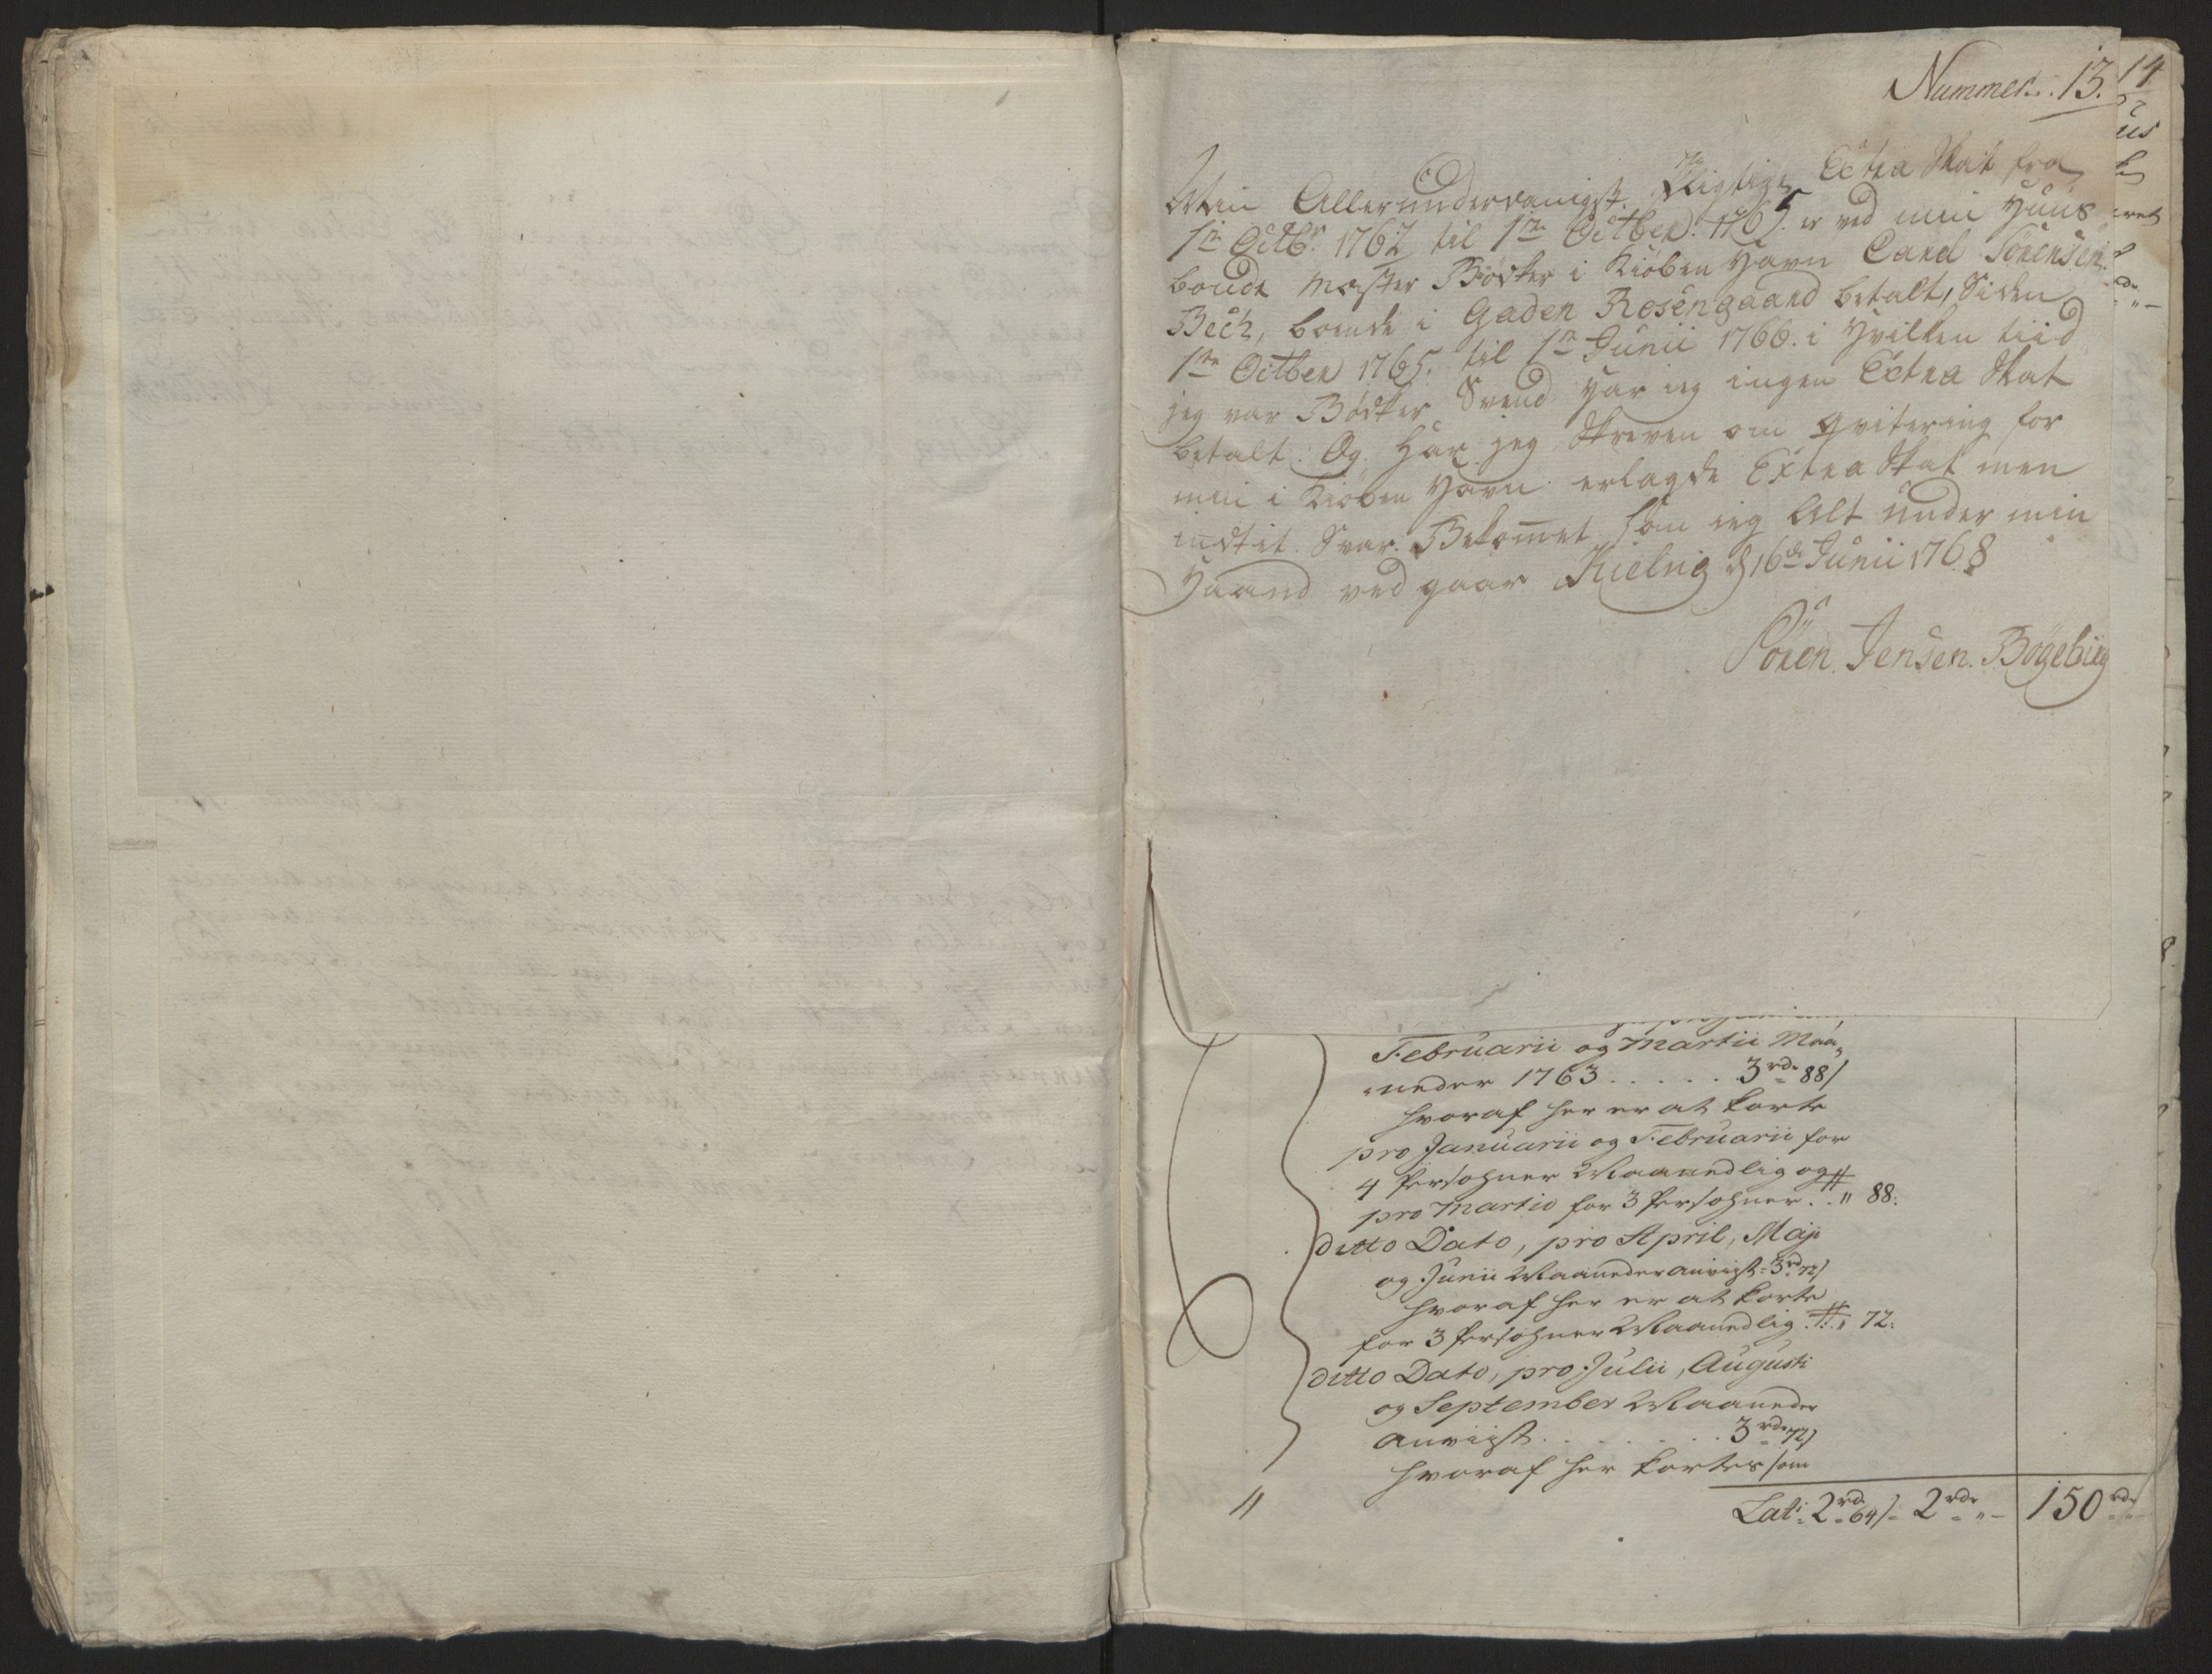 Nummer. 13.
14
Min Allerunderdanigst. Pligtige Extra Skat fra
1ste Octbr. 1762 til 1ste Octber. 1765. er ved min Huus
bonde Mester Bødker i Kiøben Havn Carel Sörensen
Bech, boende i Gaden Rosengaard betalt, Siden
1ste Octber 1765. til 1ste Junii 1766. i Hvilken tiid
jeg var Bødker Svend Har ieg ingen Extra Skat
betalt. Og Har jeg Skreven om Qvitering for
min i Kiøben Havn erlagde Extra Skat men
indtet Svar Bekom̅et, som ieg Alt under min
Haand ved gaar Kielvig d 16de Junii 1768
Sören. Jensen. Bögebierg
Februarii og Martii Maa„
„neder 1763 . . . . . 3 rdr 88/
hvoraf her er at korte
pro Januarii og Februarii for
4 Persohner Maanedlig og
pro Martio for 3 Persohner . . „ 88:
ditto Dato, pro April, Maji
og Junii Maaneder anviist = 3 rd 72/
hvoraf her er at korte
for 3 Persohner Maanedlig . „ 72:
ditto Dato, pro Julii, Augusti
og September Maaneder
anviist . . . . . . . 3 rdr 72/
hvoraf her kortes som
Lat: 2 rd 64/ = 2 rdr „ – 150 rdr